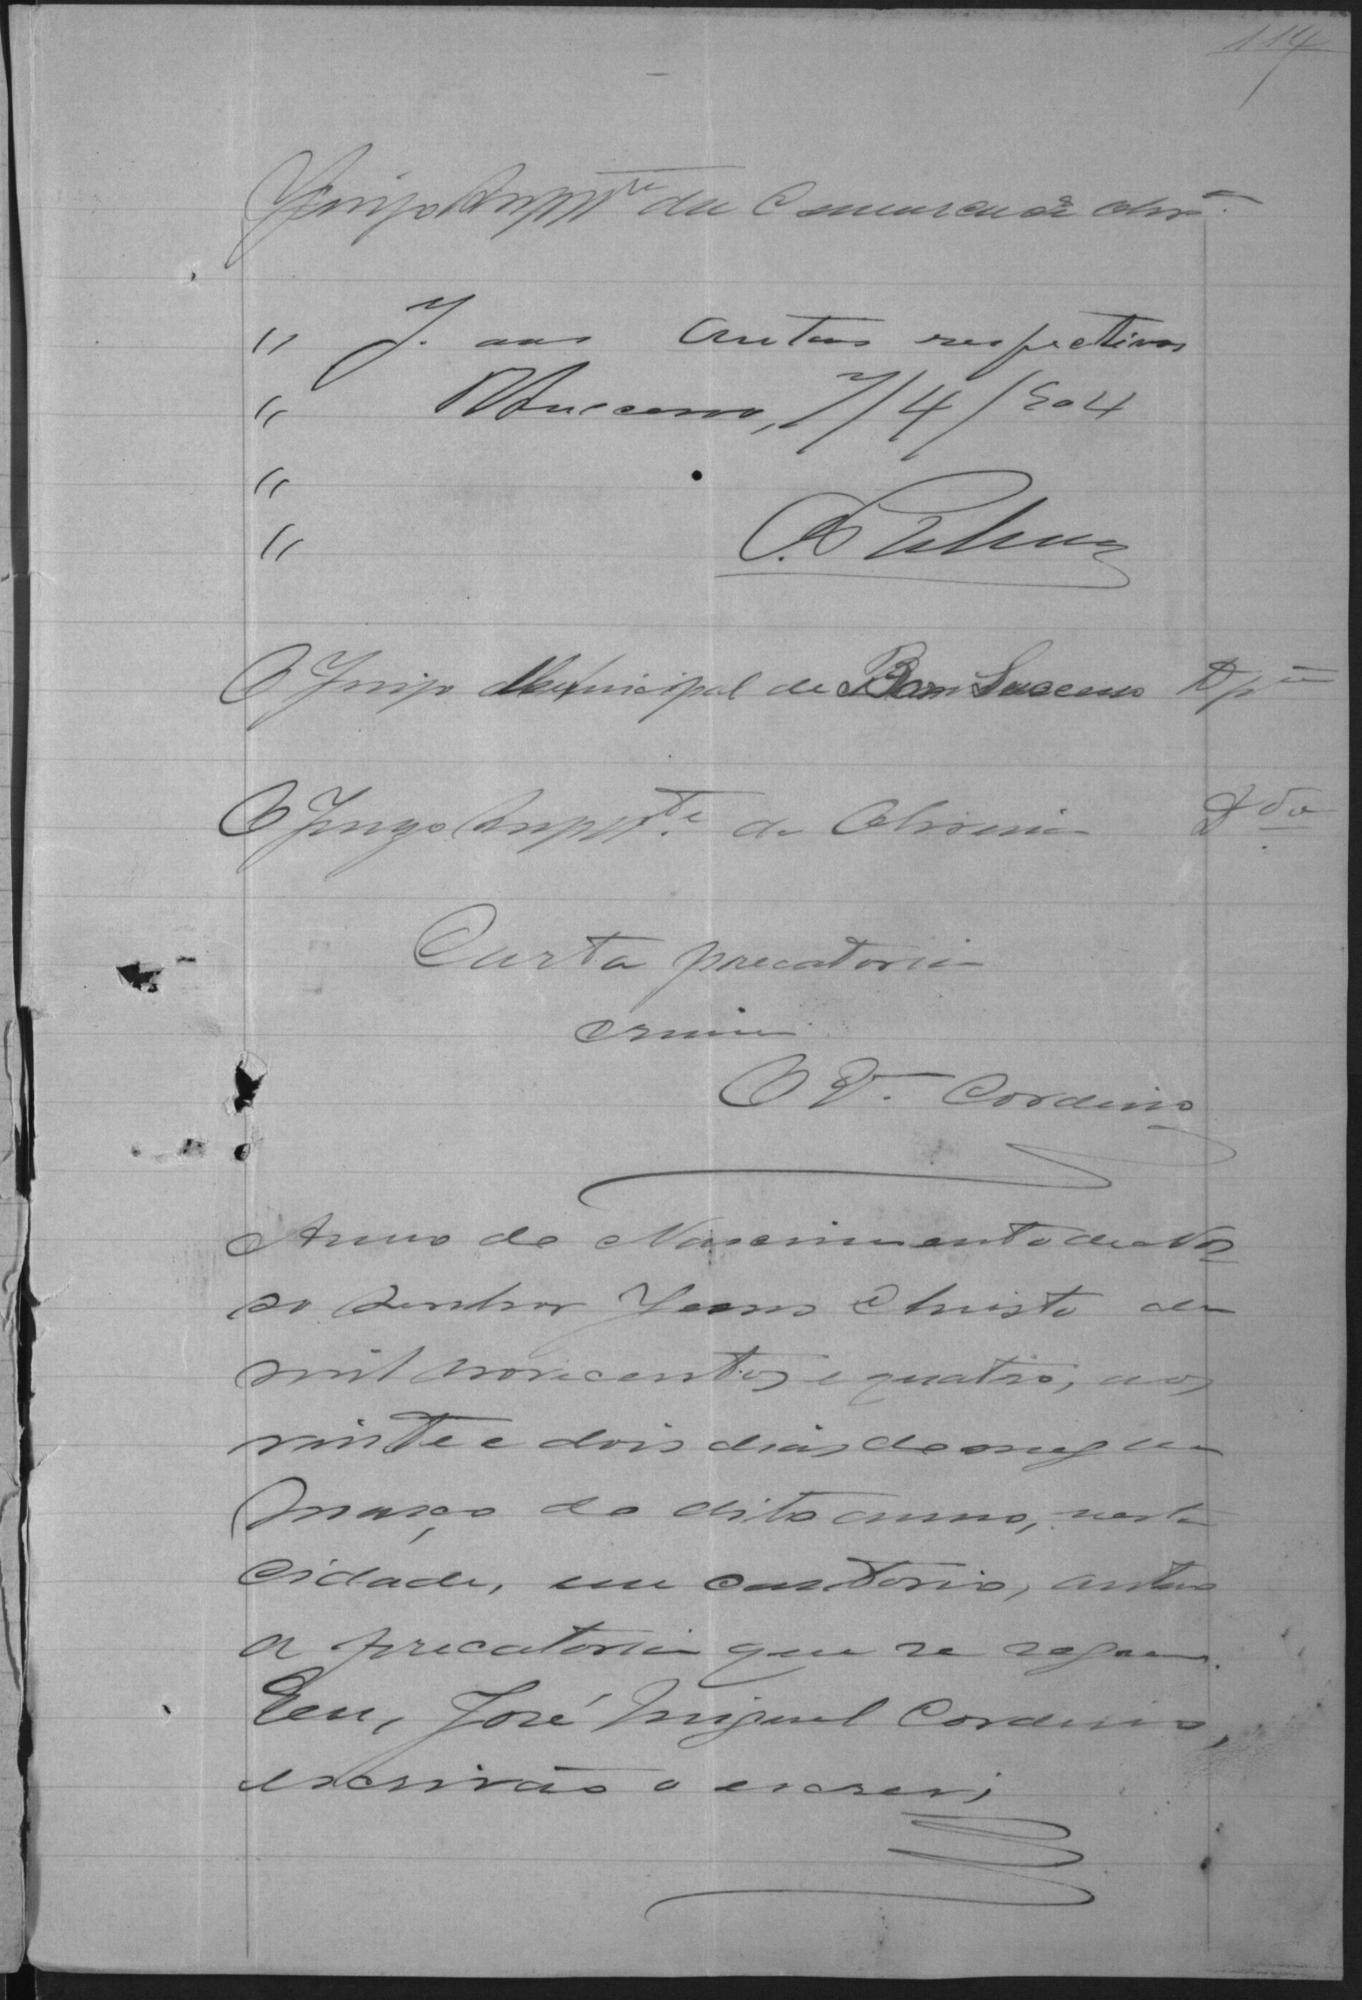 114
Juizo Suppte da Comarca de Olivra
" J. aos autos respectivos
" BSuccesso, 7/4/904
"
"
O Juizo Municipal de Bom Successo Dpte
O Juizo Suppte de Oliveira Ddo
Carta precatoria
crime
O E. Cordeiro
Anno do Nascimento de Nos
so Senhor Jesus Christo de
mil novecentos e quatro, aos
vinte e dois dias do mez de
Março do dito anno, nesta
cidade, em cartorio, autuo
a precatoria que se segue.
Eu, José Miguel Cordeiro,
escrivão o escrevi